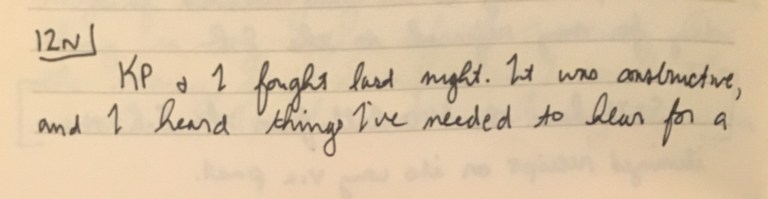 12N
KP & I fought last night. It was constructive,
and I heard things I've needed to hear for a